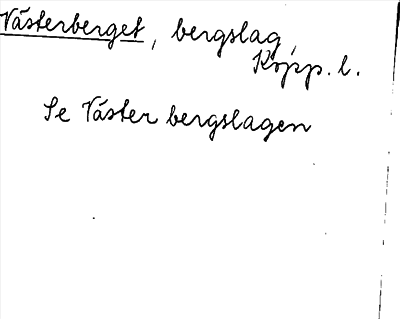 Västerberget, bergslag,
Kopp. l.
Se Väster bergslagen